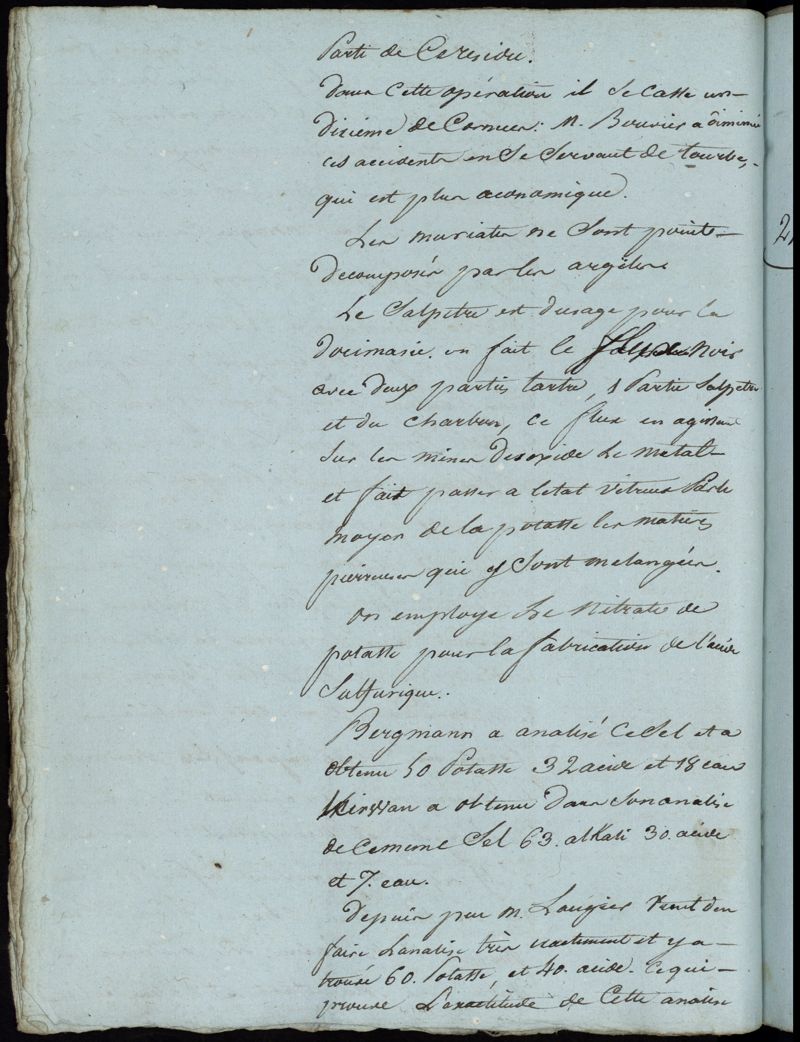 Parti de Ce residu.
dans Cette opération il se Casse un
dixiéme de Cornues: M. Bouvier a diminué
ces accidents en se servant de tourbe,
qui est plus œconomique.
Les muriates ne sont points
decomposés par les argiles
Le Salpetre est dusage pour la
docimasie. on fait le flux Noir
avec deux parties tartre, 1 Partie Salpetre
et du charbon, ce flux en agissant
sur les mines desoxide Le metal
et fait passer a letat vitreux Par le
moyen de la potasse les matieres
pierreuses qui y sont melangées.
on employe Le Nitrate de
potasse pour la fabrication de l'acide
Sulfurique.
Bergmann a analisé Ce Sel et a
obtenu 50 Potasse 32 acide et 18 eau
Kirwan a obtenu dans Son analise
de Ce meme Sel 63. alkali 30. acide
et 7. eau.
depuis peu M. Laugier Vient d'en
faire Lanalise très exactement et y a
trouvé 60. Potasse et 40. acide. Ce qui
prouve L'exactitude de Cette analise
2